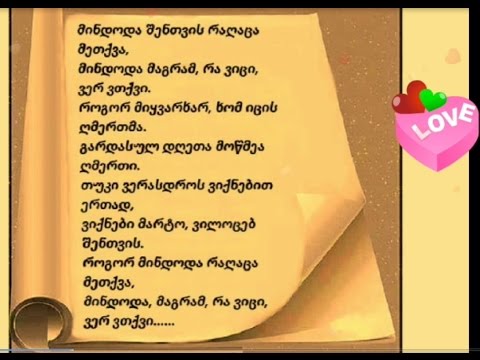 მინდოდა შენთვის რაღაცა
მეთქვა,
მინდოდა მაგრამ, რა ვიცი,
ვერ ვთქვი.
როგორ მიყვარხარ, ხომ იცის
ღმერთმა.
გარდასულ დღეთა მოწმეა
ღმერთი.
თუკი ვერასდროს ვიქნებით
ერთად,
ვიქნები მარტო, ვილოცებ
შენთვის.
როგორ მინდოდა რაღაცა
მეთქვა,
მინდოდა, მაგრამ, რა ვიცი,
ვერ ვთქვი......
LOVE